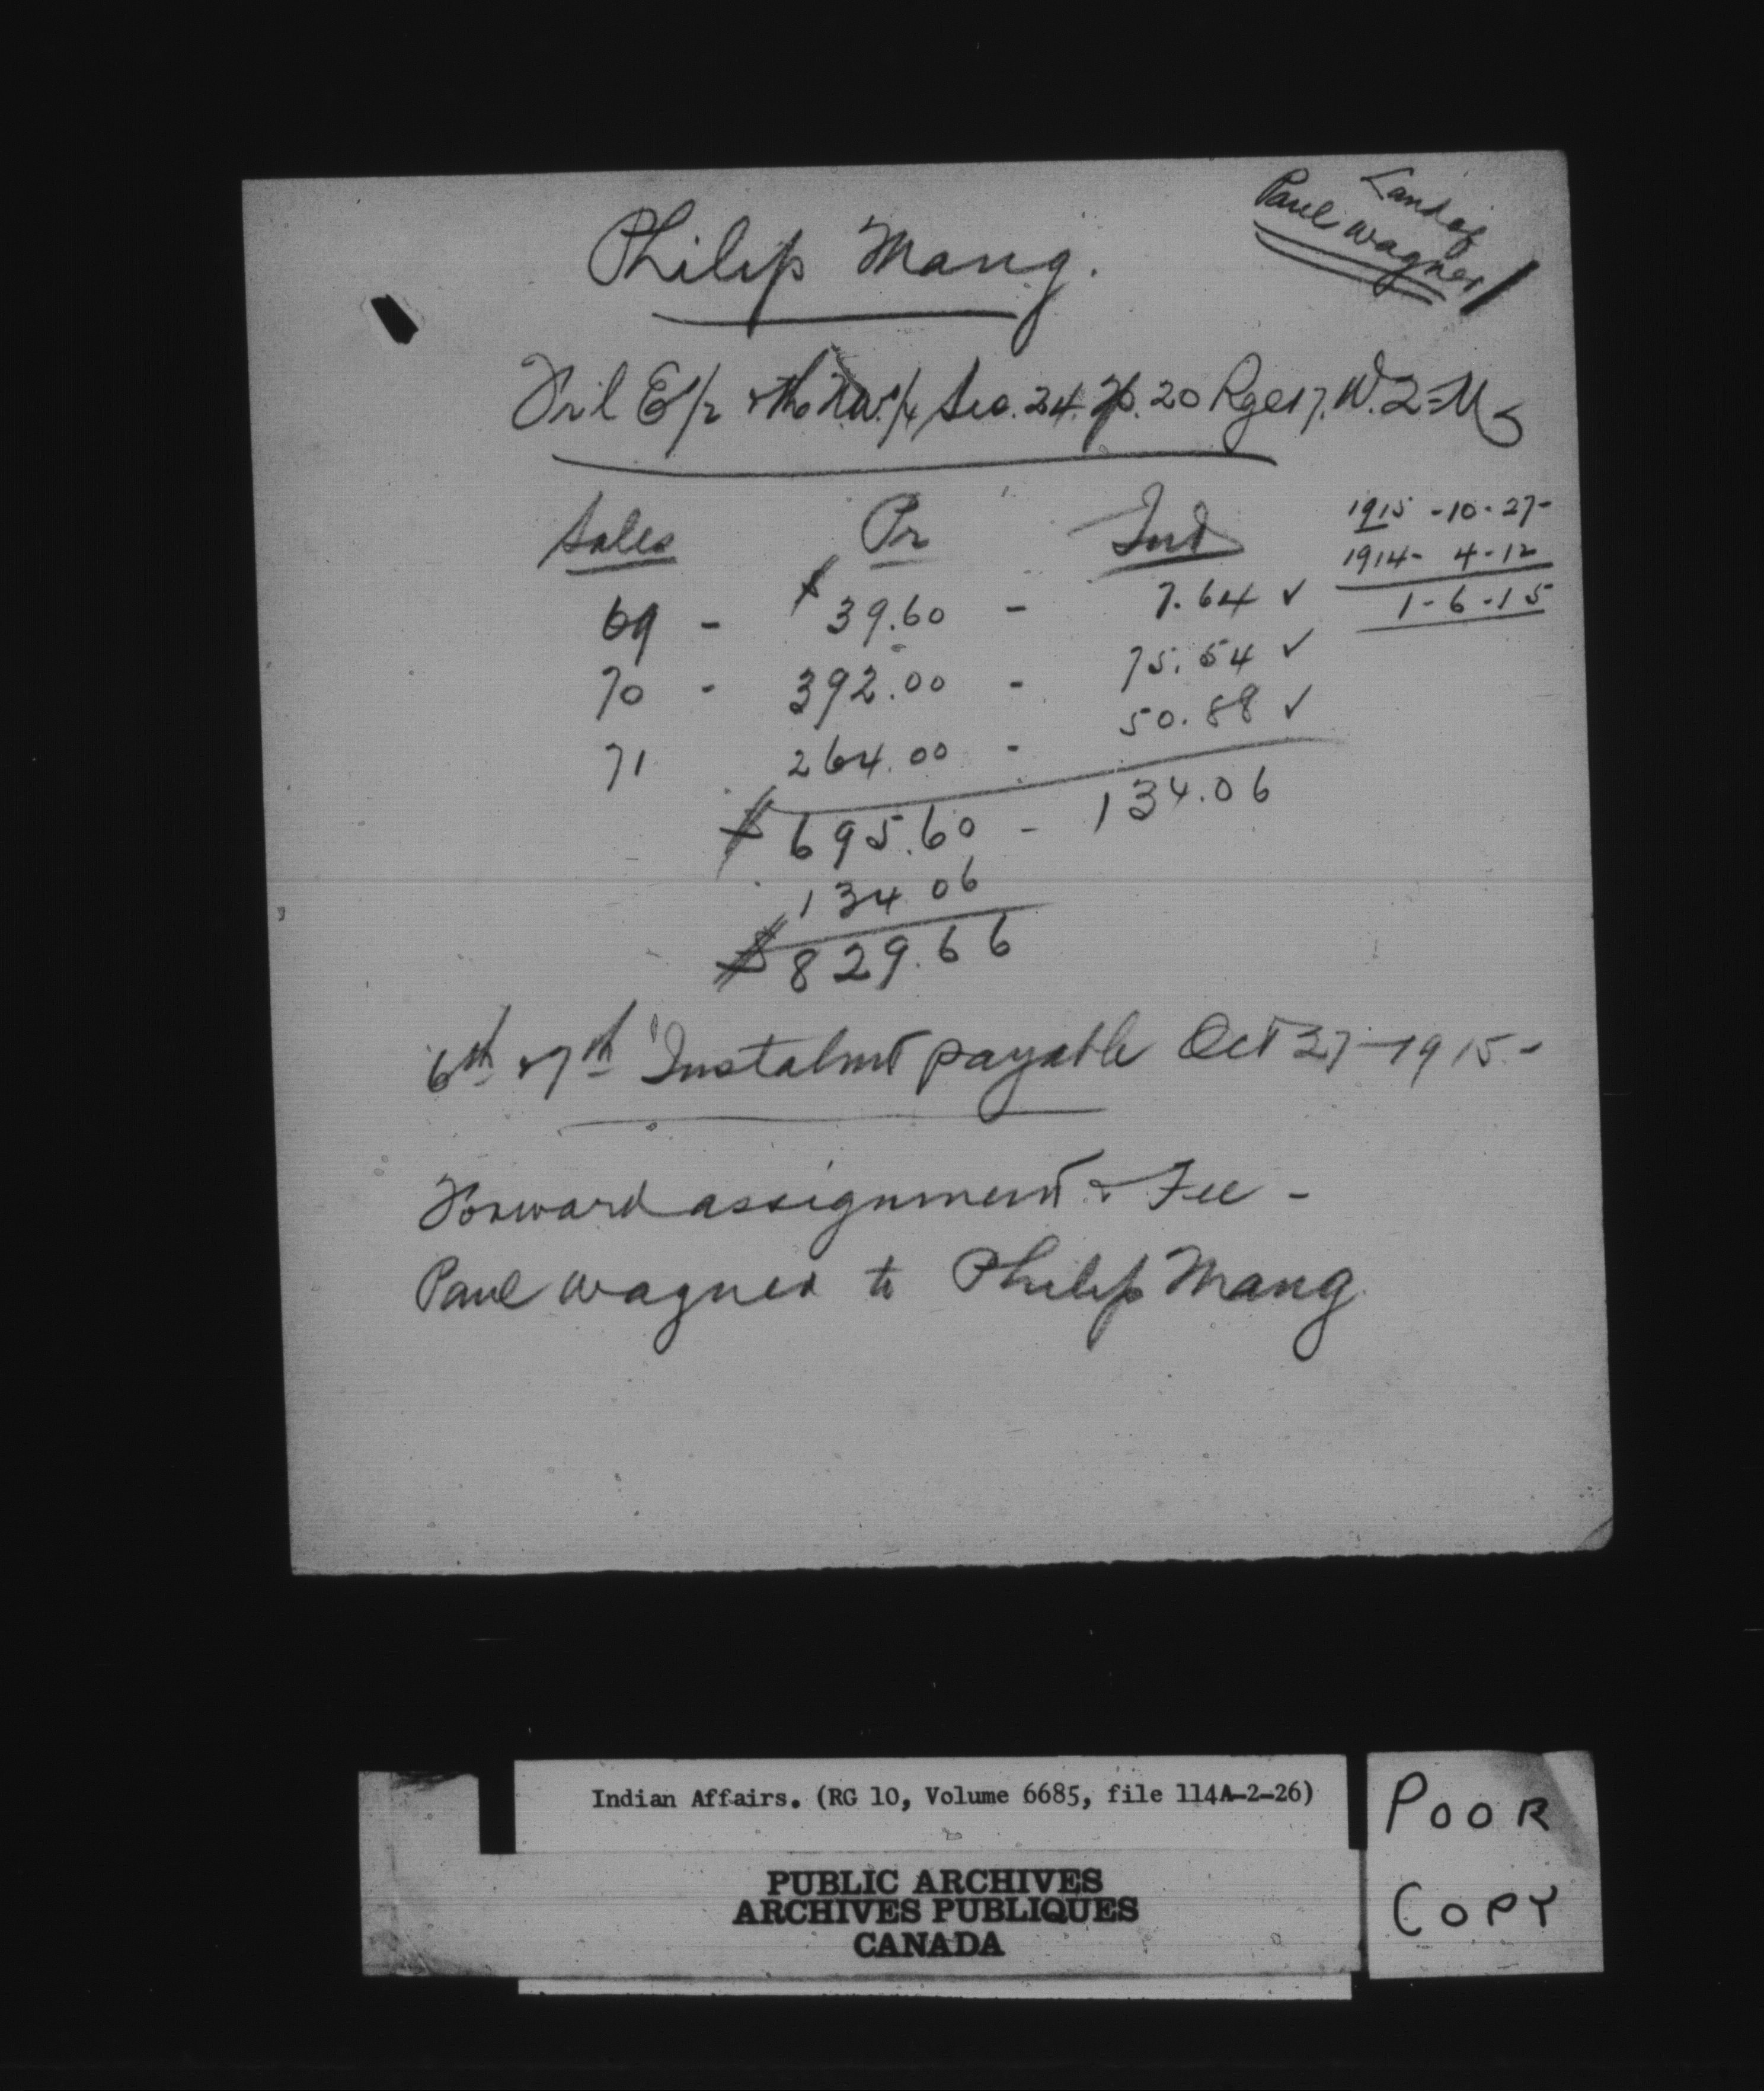 Land of
Paul Wagner
Philip Mang.
Frl E1/2 & the N.W.1/4 Sec. 24. Tp. 20 Rge 17. W. 2 = M
Sales Pr Int
69 - $ 39.60 - 7.64 ✓
70 - 392.00 - 75.54 ✓
71 264.00 - 50.88 ✓
$ 695.60 - 134.06
134.06
$ 829.66
1915 - 10 - 27 -
1914 - 4 - 12
1 - 6 - 15
6th & 7th Instalmt payable Oct 27 - 1915 -
Forward assignment & Fee -
Paul Wagner to Philip Mang
Indian Affairs. (RG 10, Volume 6685, file 114A-2-26)
PUBLIC ARCHIVES
ARCHIVES PUBLIQUES
CANADA
POOR
COPY